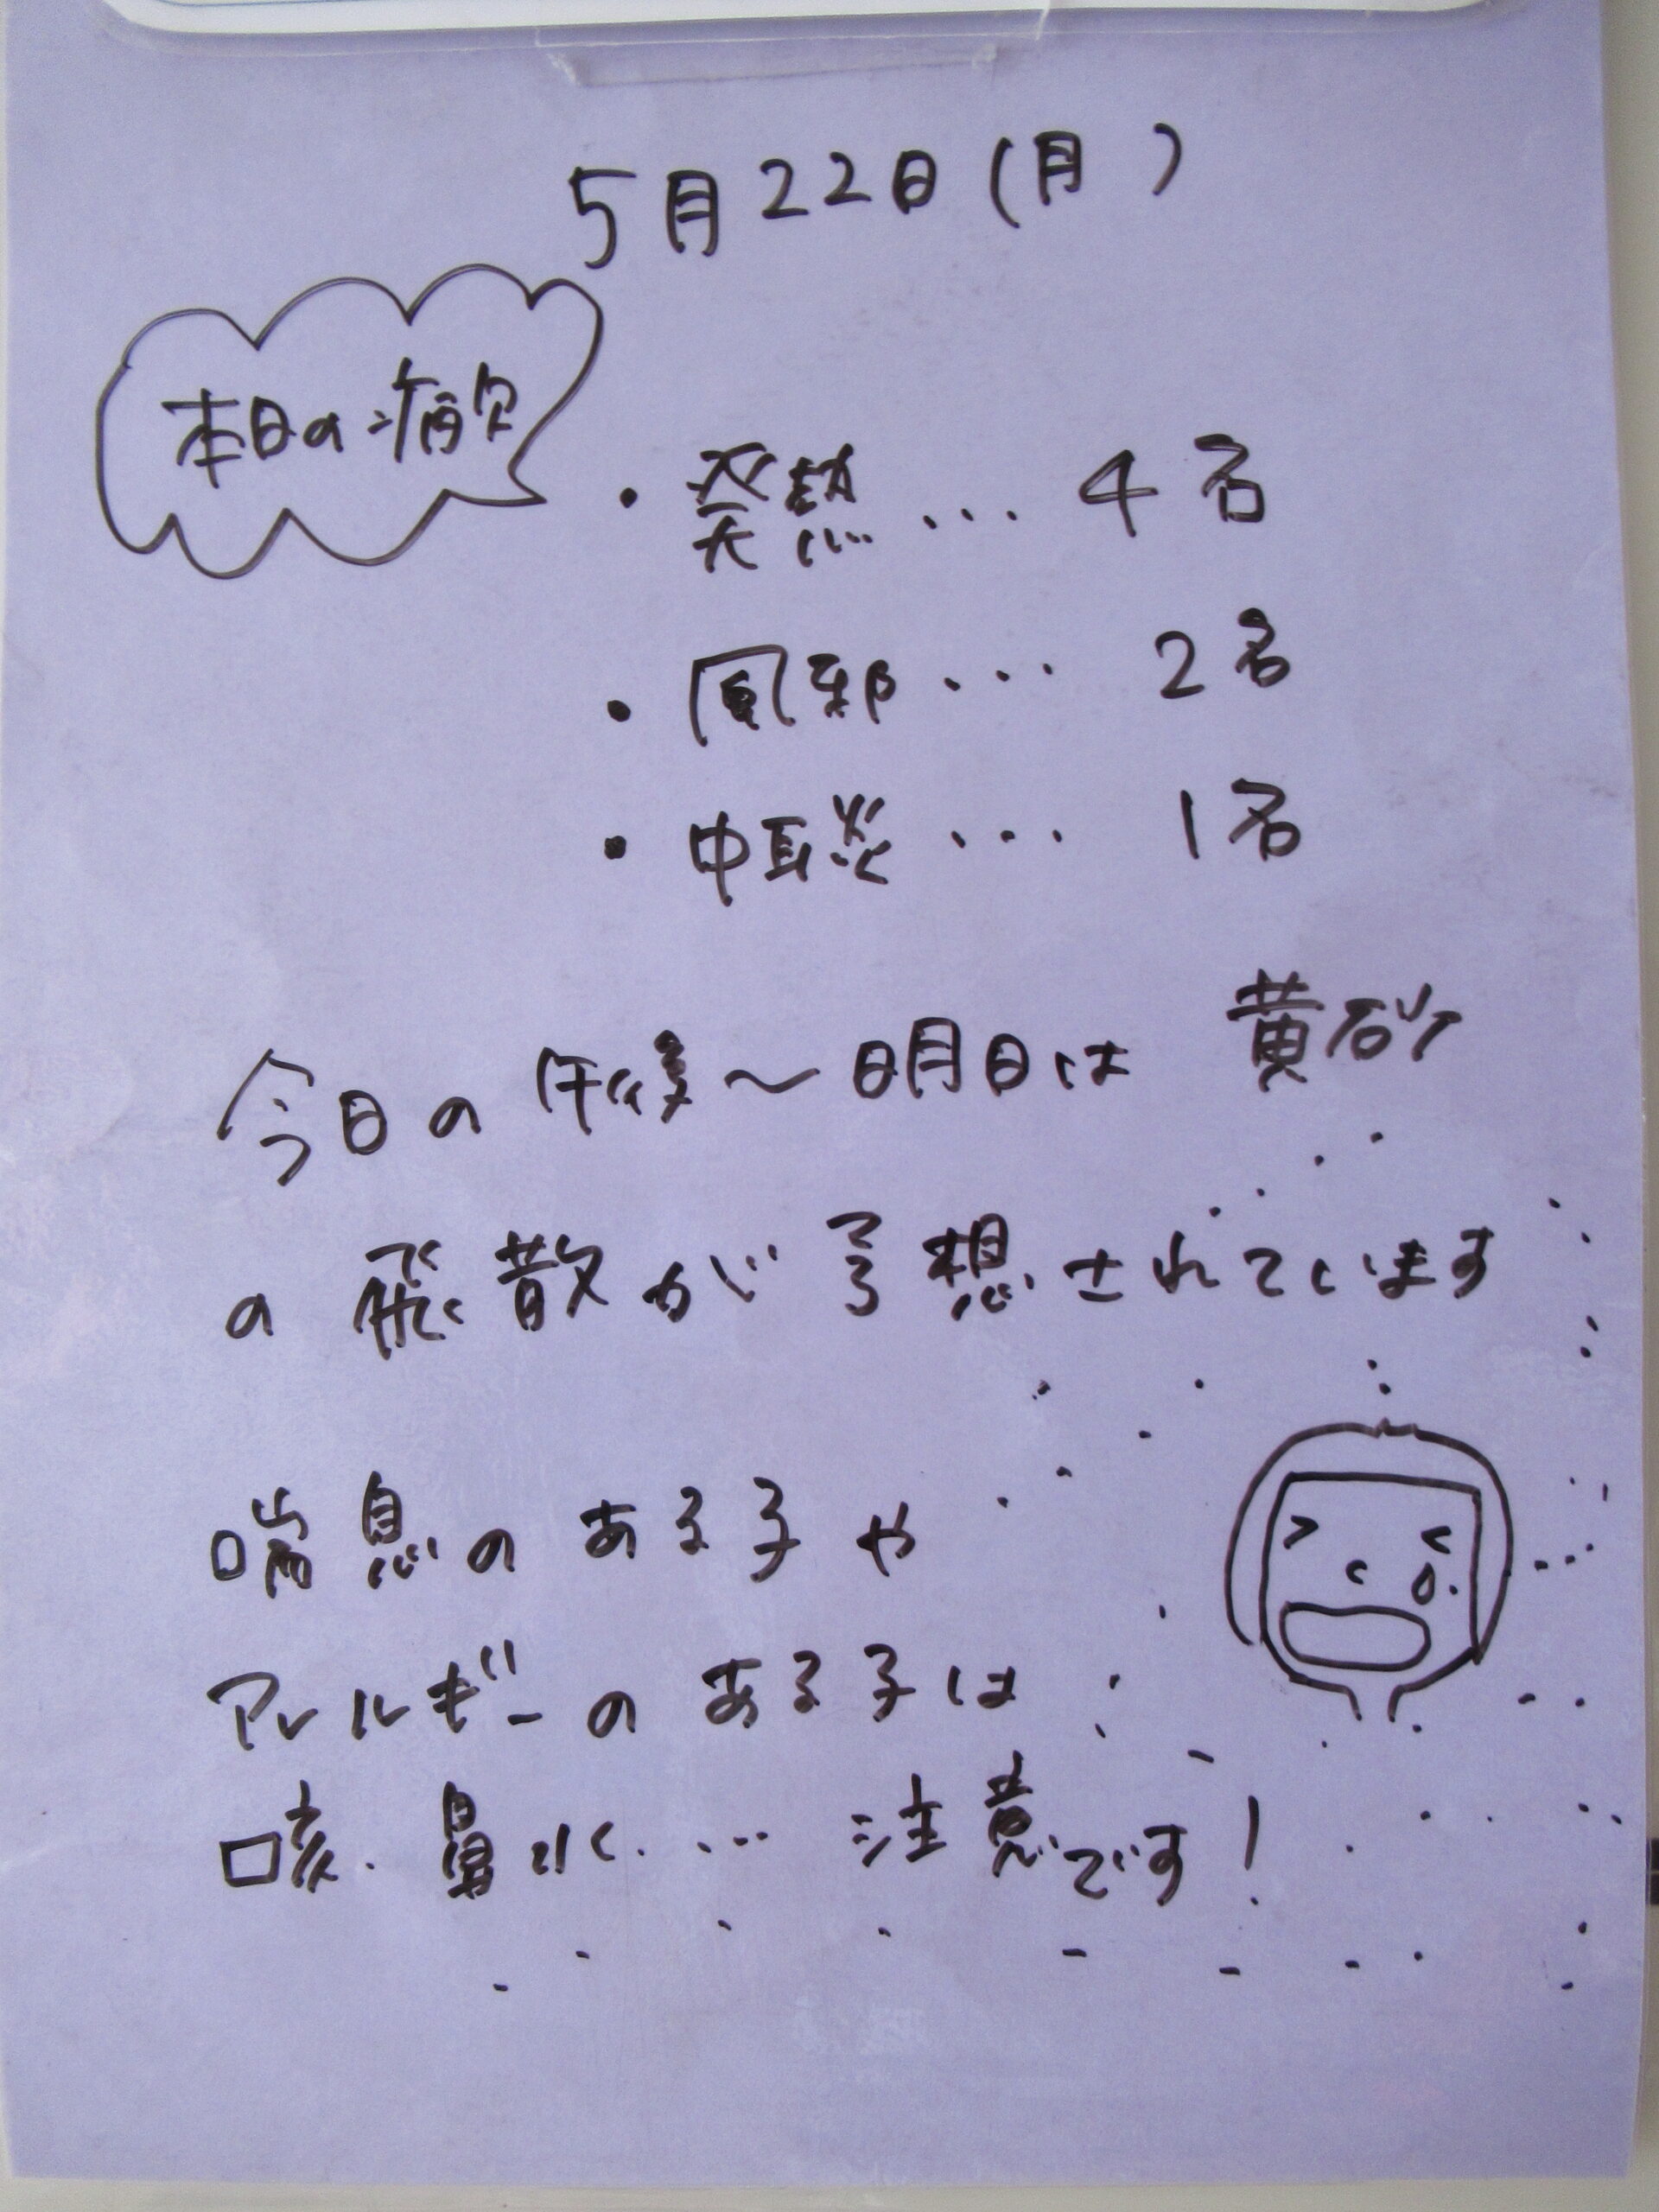 5月22日(月)
本日の病欠
・発熱…4名
・風邪…2名
・中耳炎…1名
今日の午後〜明日は 黄砂
の飛散が予想されています
喘息のある子や
アレルギーのある子は
咳.鼻水.…注意です!